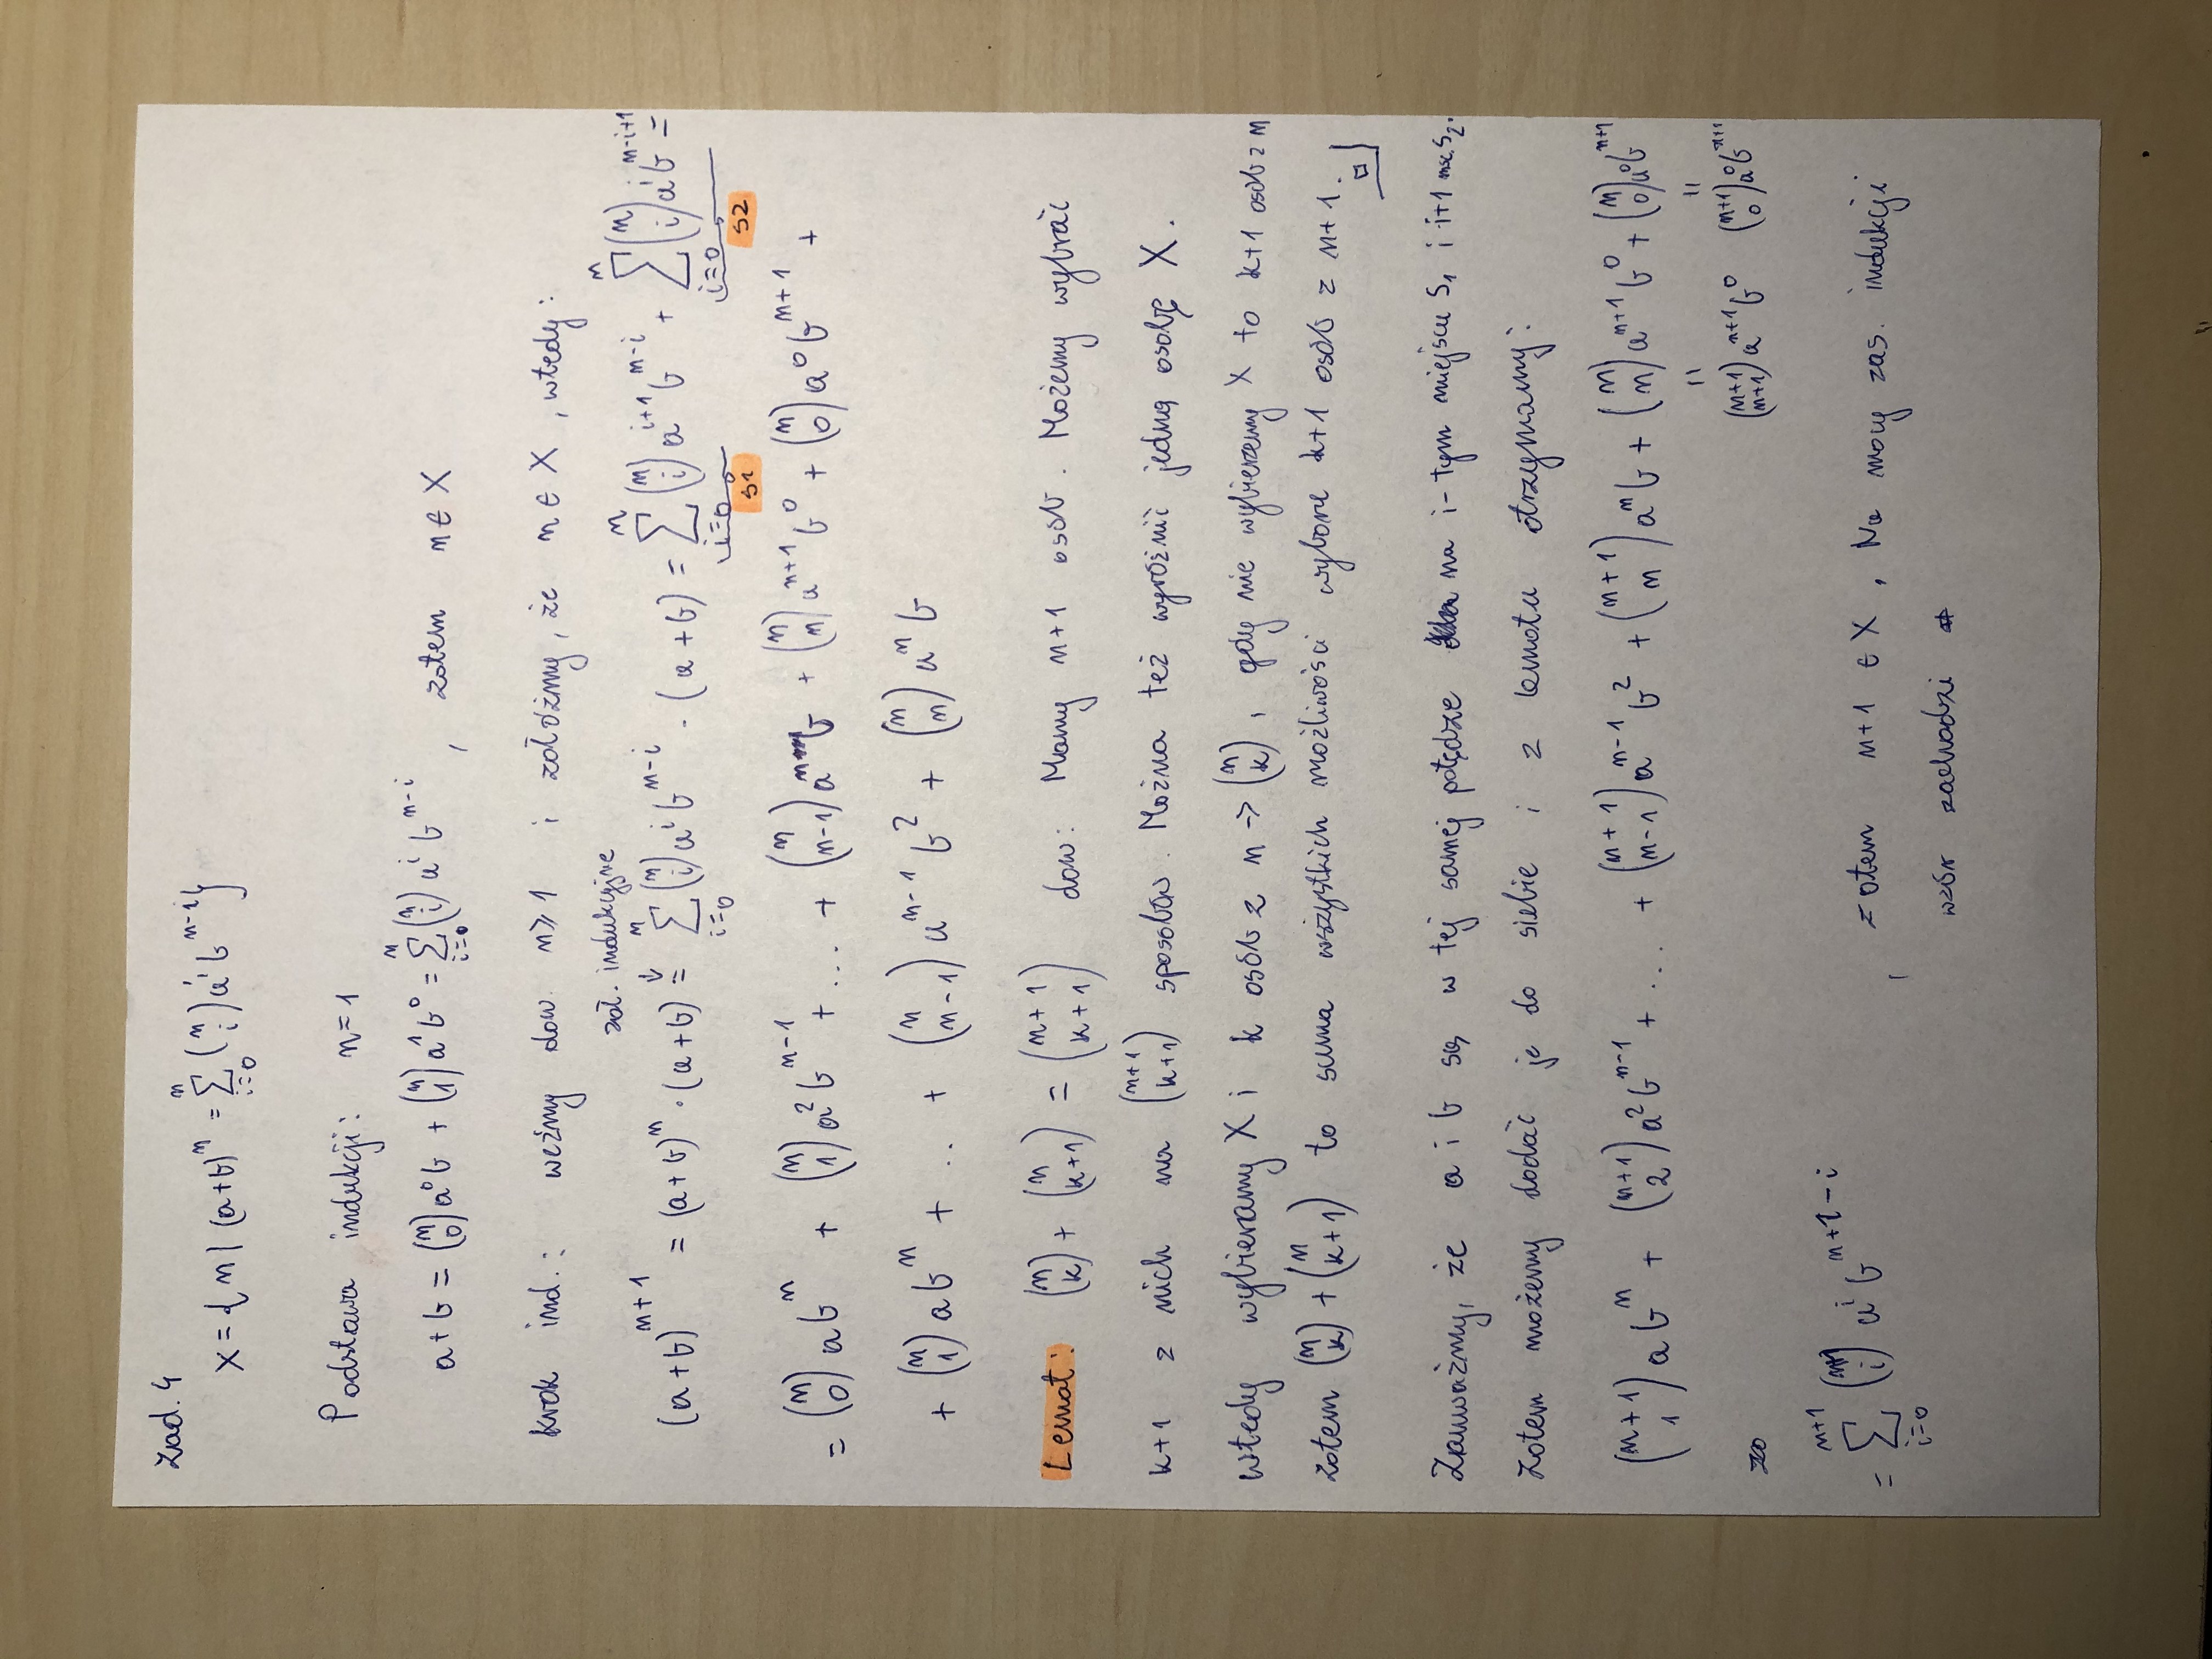 Zad. 4
X = { n | (a+b)^n = \sum_{i=0}^{n} \binom{n}{i} a^i b^{n-i} }
Podstawa indukcji: n=1
a+b = \binom{n}{0} a^0 b + \binom{n}{1} a^1 b^0 = \sum_{i=0}^{n} \binom{n}{i} a^i b^{n-i} , zatem n ∈ X
Krok ind.: weźmy dow. n ≥ 1 i załóżmy, że n ∈ X , wtedy:
zał. indukcyjne
(a+b)^{n+1} = (a+b)^n · (a+b) = \sum_{i=0}^{n} \binom{n}{i} a^i b^{n-i} · (a+b) = \sum_{i=0}^{n} \binom{n}{i} a^{i+1} b^{n-i} + \sum_{i=0}^{n} \binom{n}{i} a^i b^{n-i+1} =
S1 S2
= \binom{n}{0} a b^n + \binom{n}{1} a^2 b^{n-1} + ... + \binom{n}{n-1} a^n b + \binom{n}{n} a^{n+1} b^0 + \binom{n}{0} a^0 b^{n+1} +
+ \binom{n}{1} a b^n + .. + \binom{n}{n-1} a^{n-1} b^2 + \binom{n}{n} a^n b
Lemat: \binom{n}{k} + \binom{n}{k+1} = \binom{n+1}{k+1} dow: Mamy n+1 osób. Możemy wybrać
k+1 z nich na \binom{n+1}{k+1} sposobów. Można też wyróżnić jedną osobę X.
Wtedy wybieramy X i k osób z n -> \binom{n}{k} , gdy nie wybierzemy X to k+1 osób z n
zatem \binom{n}{k} + \binom{n}{k+1} to suma wszystkich możliwości wyboru k+1 osób z n+1. □
Zauważmy, że a i b są w tej samej potędze na i-tym miejscu S_1 i i+1 msc. S_2.
Zatem możemy dodać je do siebie i z lematu otrzymamy:
\binom{n+1}{1} a b^n + \binom{n+1}{2} a^2 b^{n-1} + ... + \binom{n+1}{n-1} a^{n-1} b^2 + \binom{n+1}{n} a^n b + \binom{n}{n} a^{n+1} b^0 + \binom{n}{0} a^0 b^{n+1}
= =
\binom{n+1}{n+1} a^{n+1} b^0 \binom{n+1}{0} a^0 b^{n+1}
= \sum_{i=0}^{n+1} \binom{n+1}{i} a^i b^{n+1-i} , zatem n+1 ∈ X . Na mocy zas. indukcji
wzór zachodzi